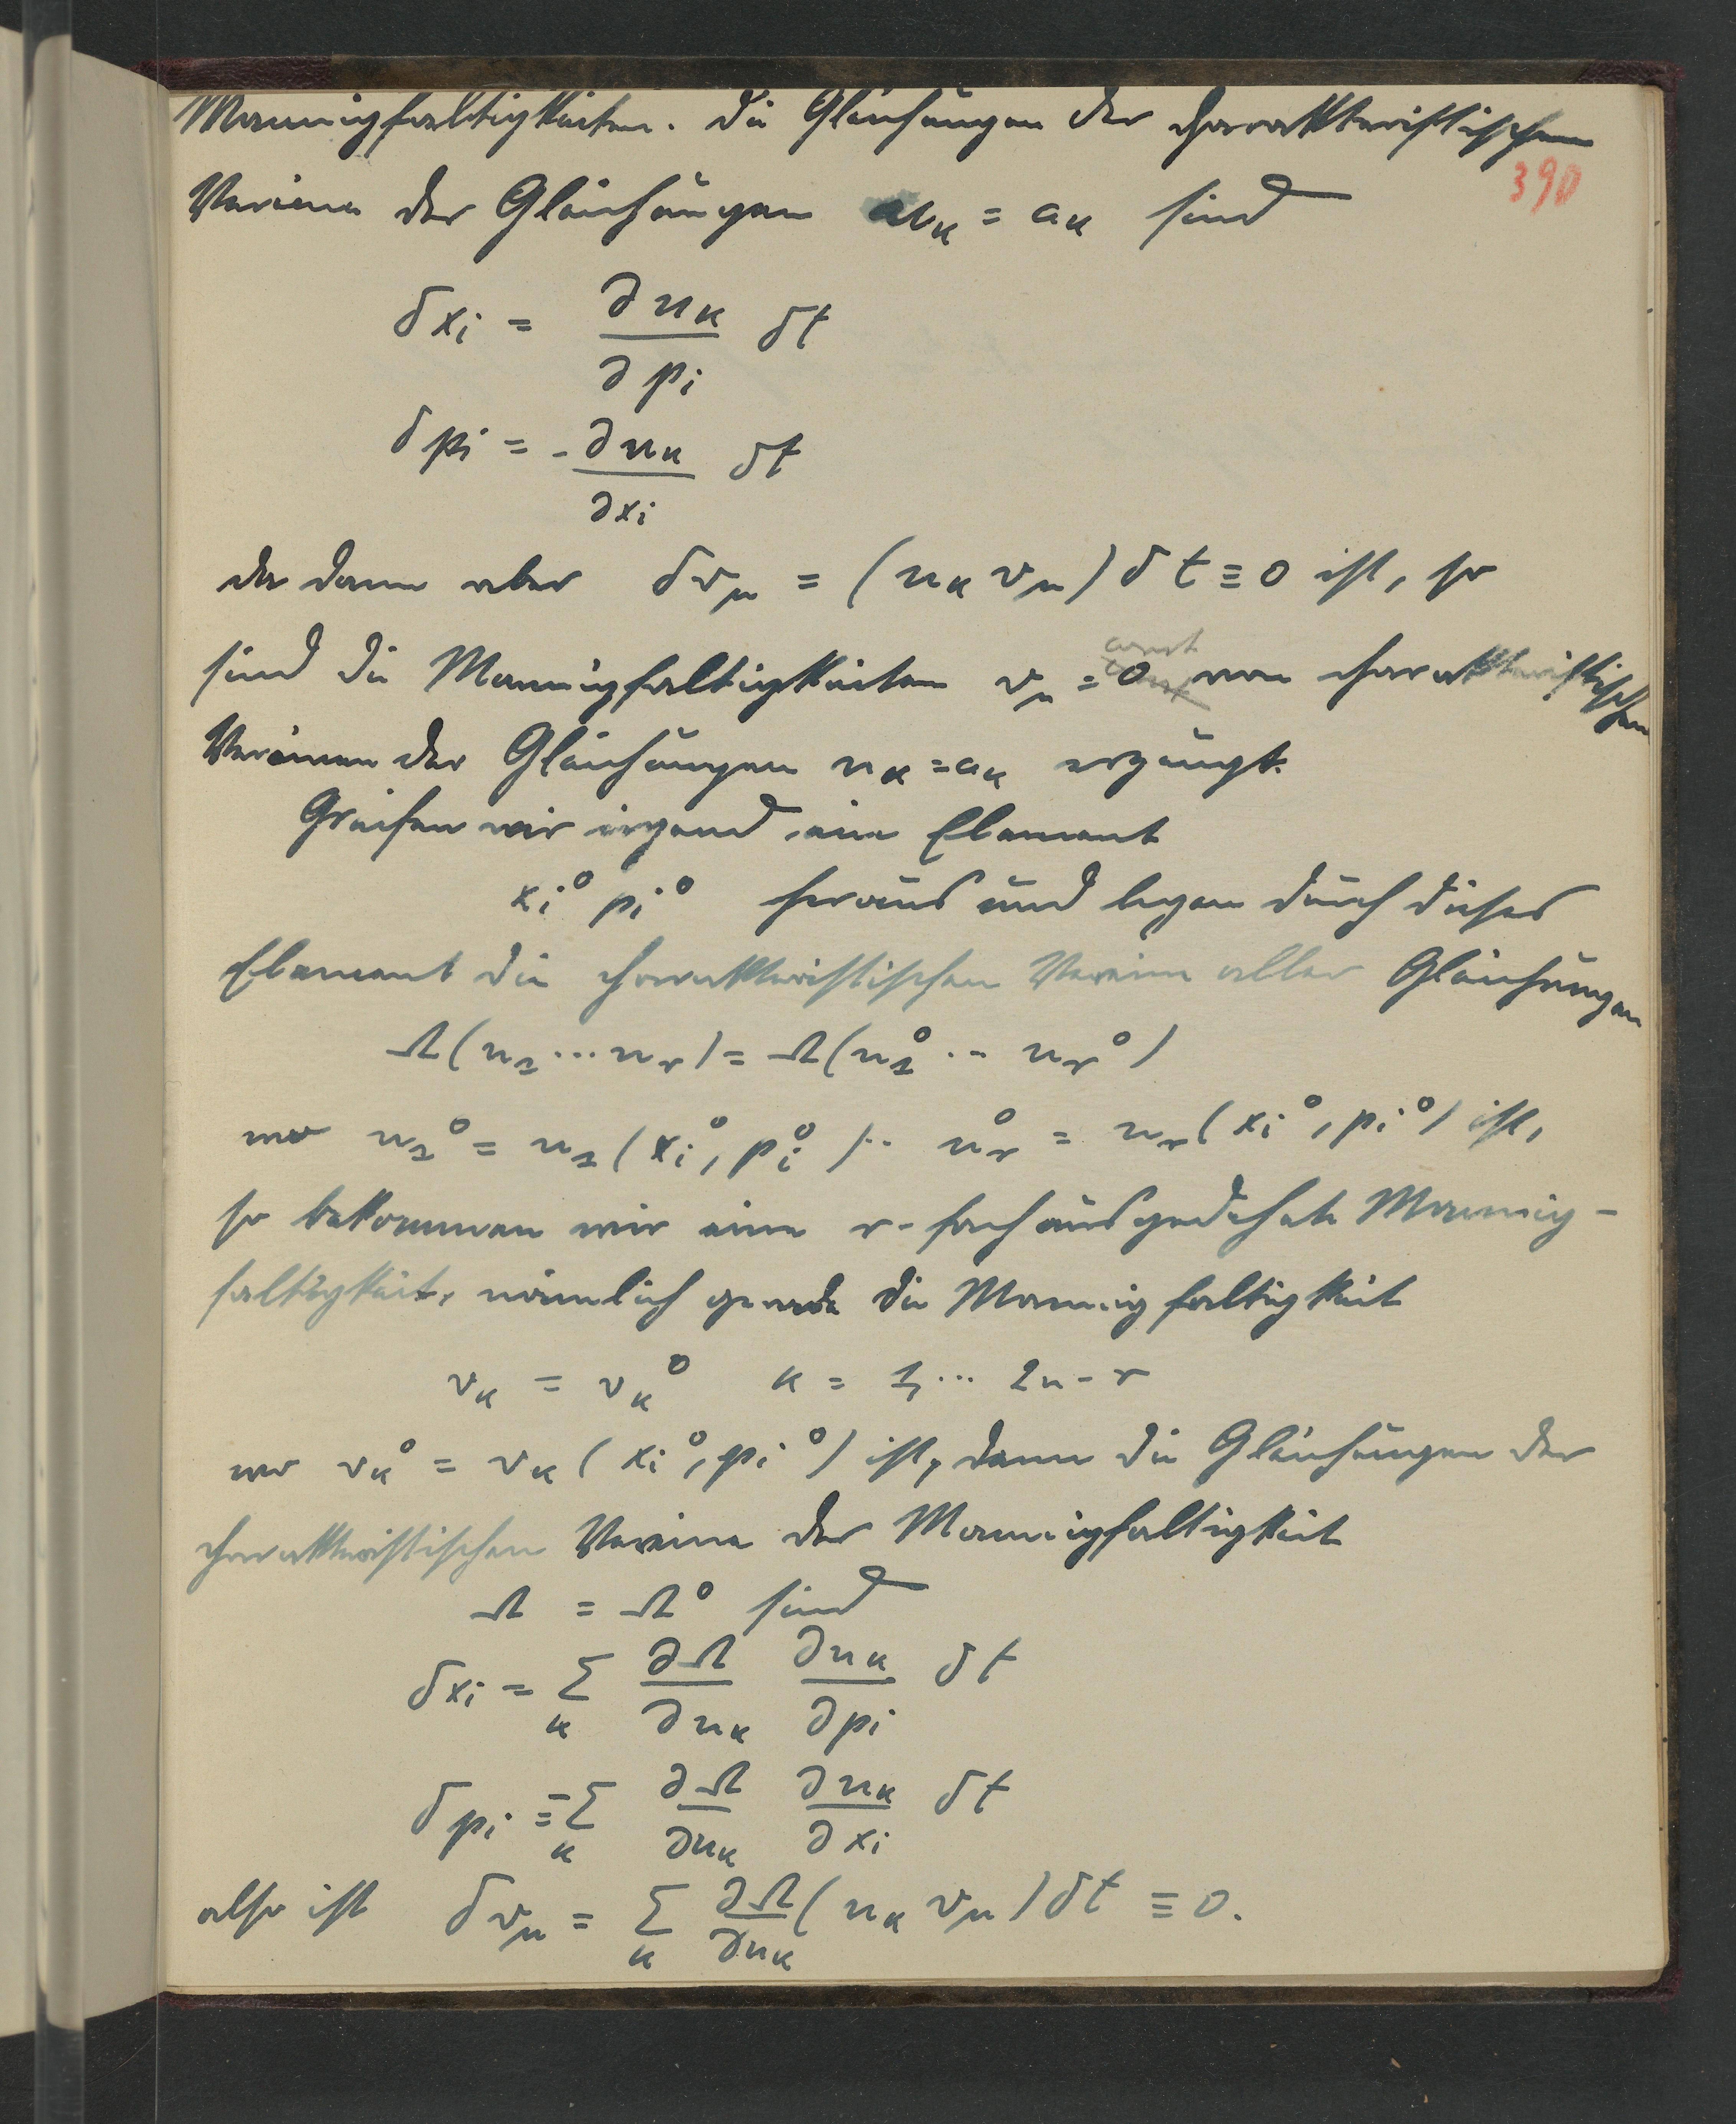 Mannigfaltigkeiten. Die Gleichungen der charakteristischen
390
Vereine der Gleichungen u_κ = a_κ sind
δx_i = ∂u_κ/∂p_i δt
δp_i = -∂u_κ/∂x_i δt
da dann aber δv_μ = (u_κ v_μ) δt ≡ 0 ist, so
const
sind die Mannigfaltigkeiten v_μ = 0 von charakteristischen
Vereinen der Gleichungen u_κ = a_κ erzeugt.
Greifen wir irgend ein Element
x_i° p_i° heraus und legen durch dieses
Element die charakteristischen Vereine aller Gleichungen
Ω(u_1 ... u_r) = Ω(u_1° .. u_r°)
wo u_1° = u_1(x_i°, p_i°) .. u_r° = u_r(x_i°, p_i°) ist,
so bekommen wir eine r-fach ausgedehnte Mannig-
faltigkeit, nämlich gerade die Mannigfaltigkeit
v_κ = v_κ° κ = 1, ... 2n - r
wo v_κ° = v_κ(x_i°, p_i°) ist, denn die Gleichungen der
charakteristischen Vereine der Mannigfaltigkeit
Ω = Ω° sind
δx_i = Σ_κ ∂Ω/∂u_κ ∂u_κ/∂p_i δt
δp_i = -Σ_κ ∂Ω/∂u_κ ∂u_κ/∂x_i δt
also ist δv_μ = Σ_κ ∂Ω/∂u_κ (u_κ v_μ) δt ≡ 0.